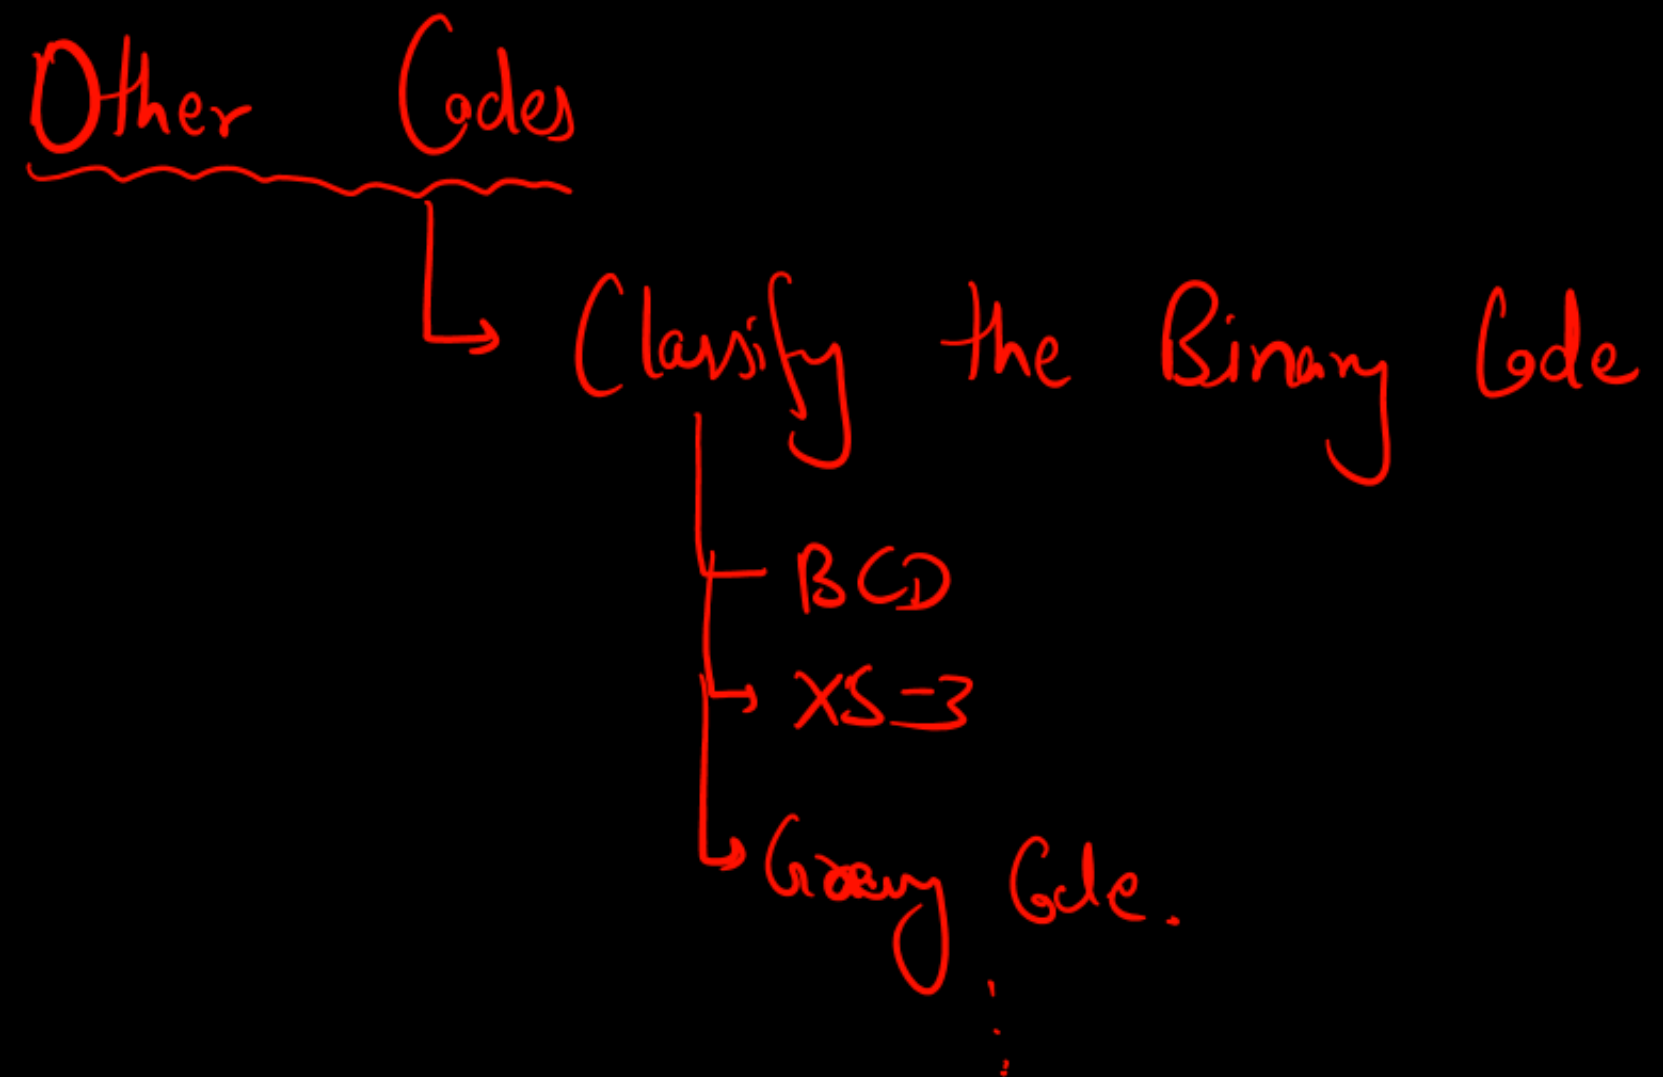 Other Codes
Classify the Binary Code
BCD
XS-3
Gray Code.